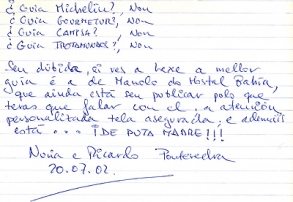 ¿ Guia Michelin?, Non
¿ Guia Gourmetur?, Non
¿ Guia Campsa?, Non
¿ Guia Trotamundos?, Non
Sen dúbida, si ves a Laxe, a mellor
guia é a de Manolo do Hostal Bahía,
que ainda está seu publicar polo que
teras que falar con el, a atención
personalitzada tela asegurada, e ademais
está ... ¡DE PUTA MADRE!!!
Nuria e Ricardo Pontevedra
20.07.02.